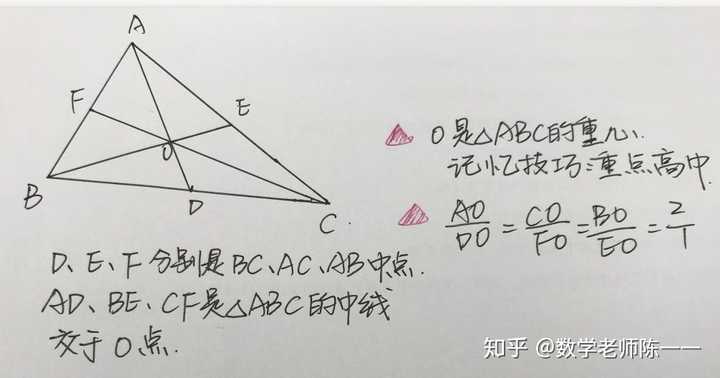 A
F
E
O
B
D
C.
O是△ABC的重心.
记忆技巧:重点高中.
AO/DO = CO/FO = BO/EO = 2/1
D、E、F分别是BC、AC、AB中点.
AD、BE、CF是△ABC的中线
交于O点.
知乎 @数学老师陈一一